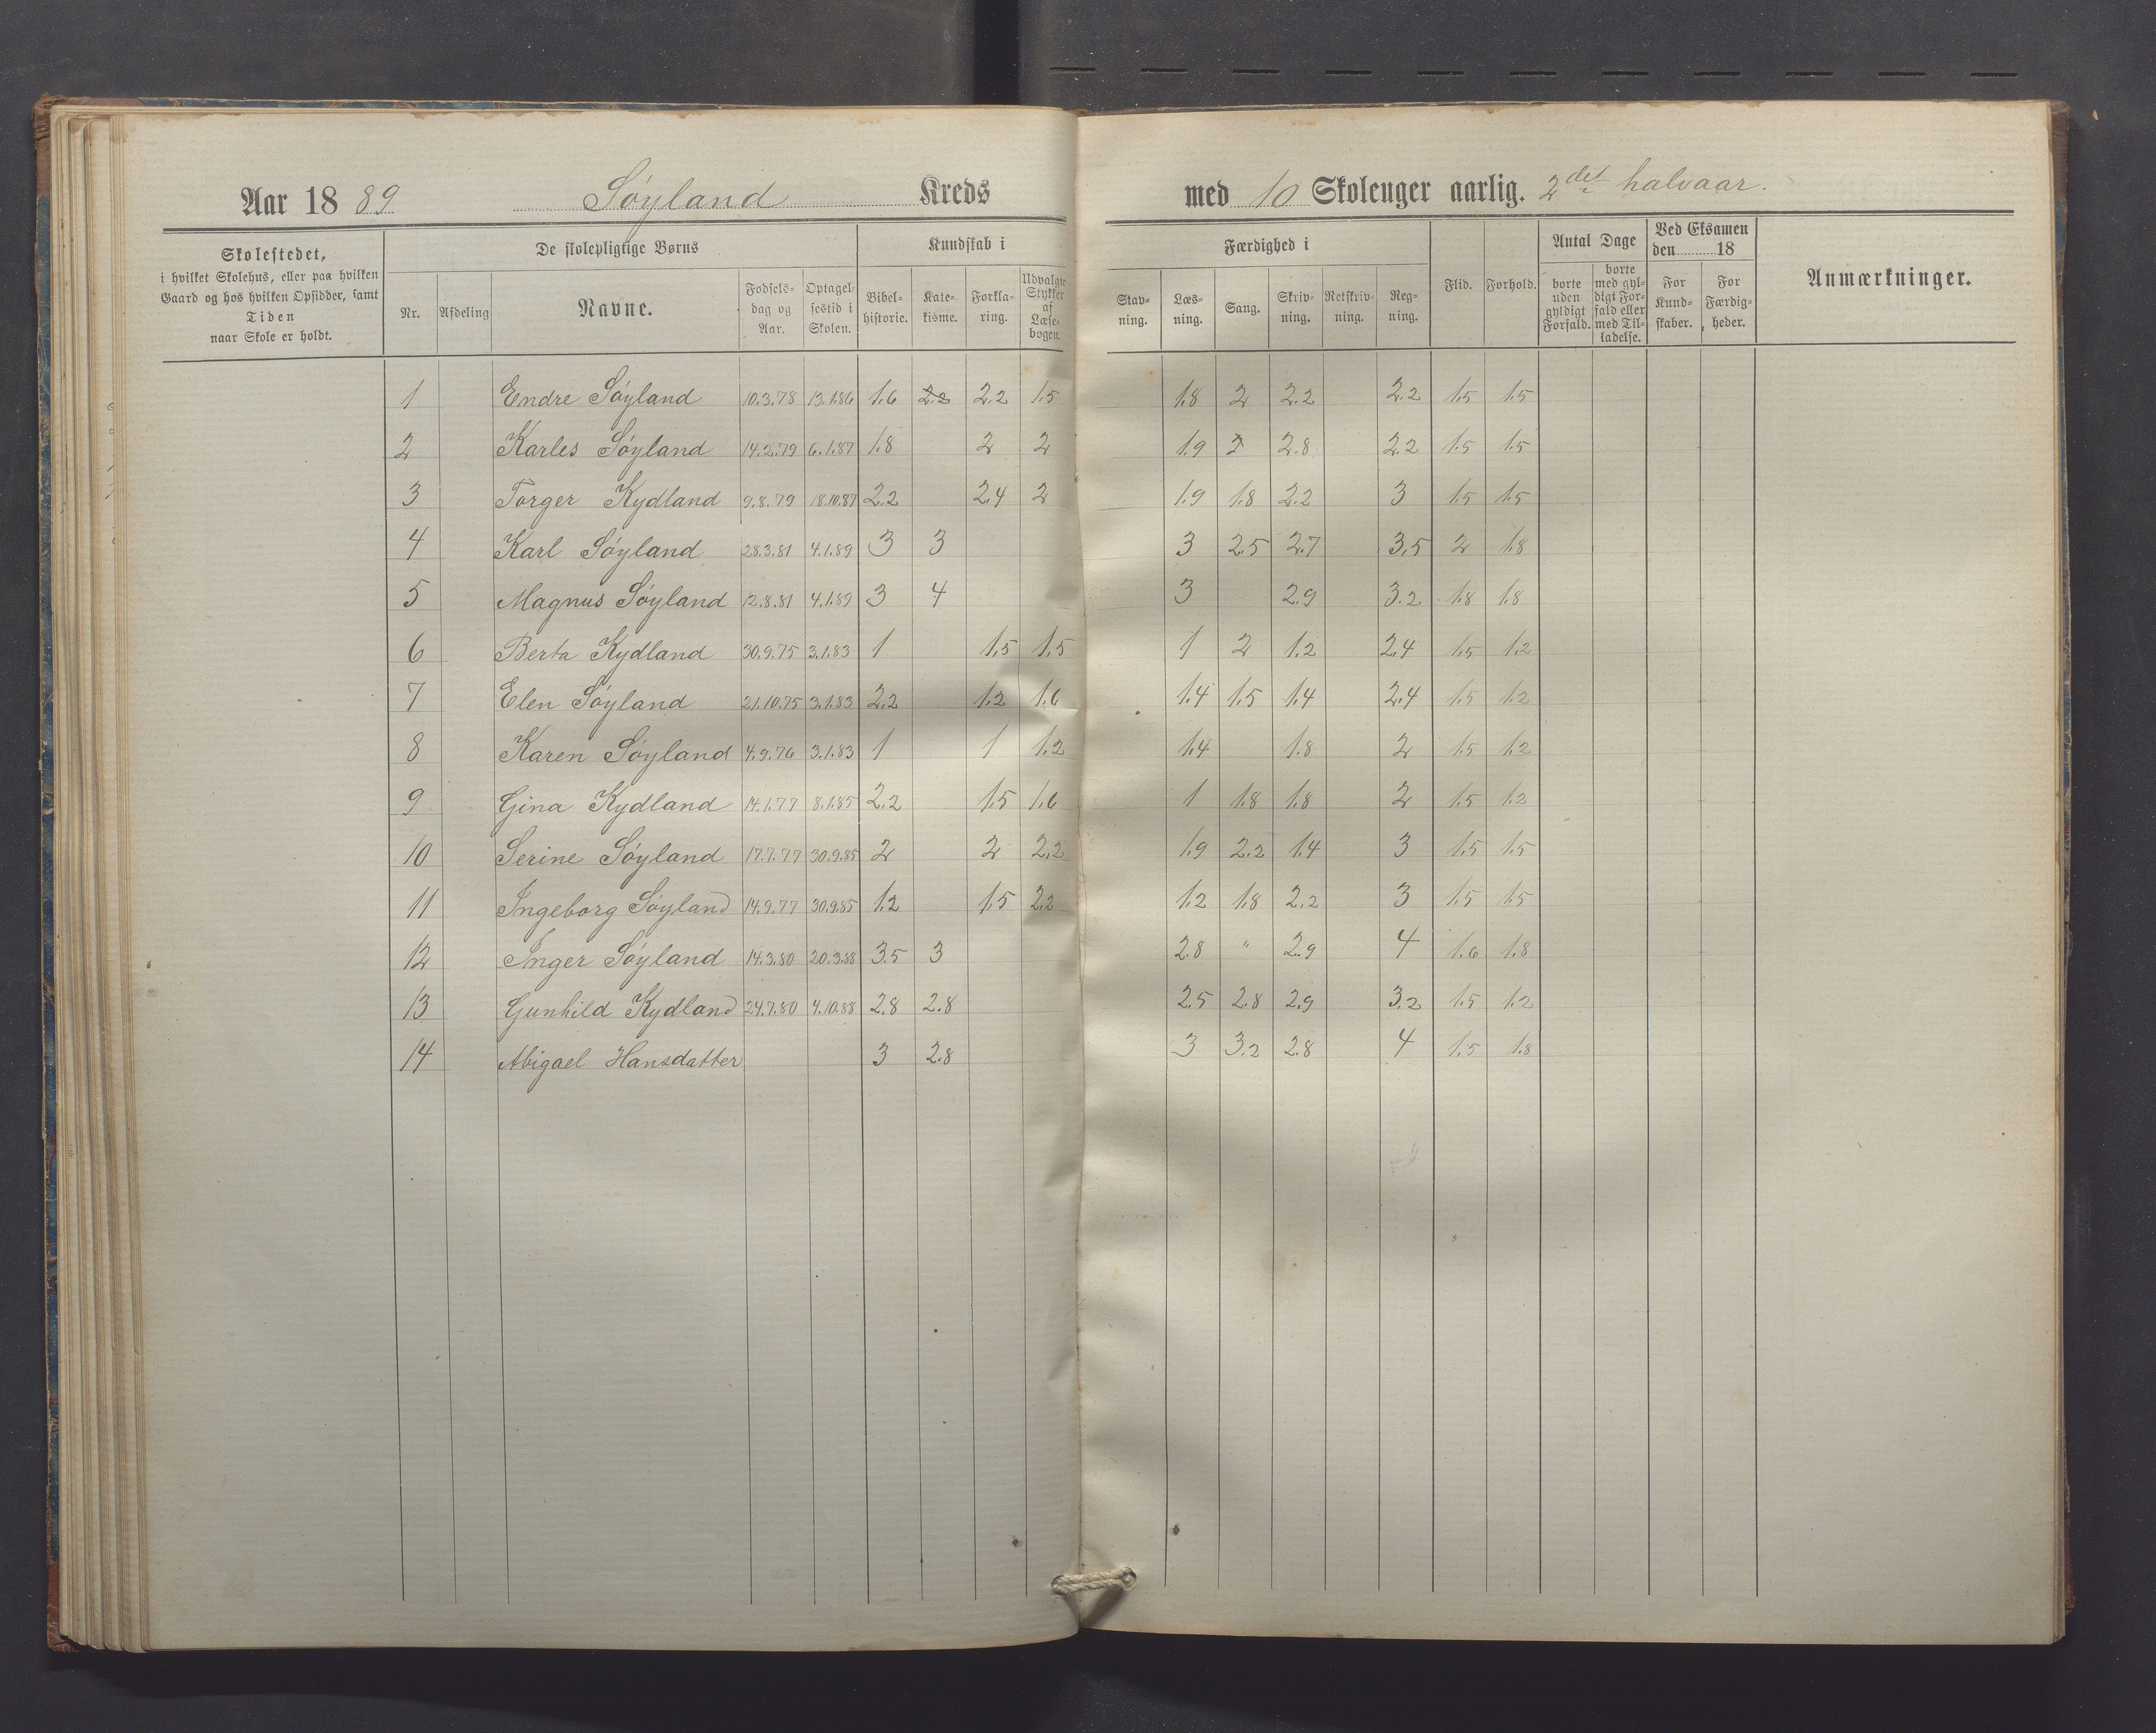 Aar 1889 Søyland Kreds med 10 Skoleuger aarlig. 2det halvaar.
Skolestedet, i hvilket Skolehus, eller paa hvilken Gaard og hos hvilken Opsidder, samt Tiden naar Skole er holdt.
De skolepligtige Børns
Kundskab i
Færdighed i
Antal Dage
Ved Eksamen den 18
Nr. Afdeling Navne. Fødsels-dag og Aar. Optagel-sestid i Skolen. Bibel-historie. Kate-kisme. Forkla-ring. Udvalgte Stykker af Læse-bogen. Stav-ning. Læs-ning. Sang. Skriv-ning. Retskriv-ning. Reg-ning. Flid. Forhold. borte uden gyldigt Forfald. borte med gyl-digt For-fald eller med Til-ladelse. For Kund-skaber. For Færdig-heder. Anmærkninger.
1 Endre Søyland 10.3.78 13.1.86 1.6 2.2 2.2 1.5 1.8 2 2.2 2.2 1.5 1.5
2 Karles Søyland 14.2.79 6.1.87 1.8 2 2 1.9 2 2.8 2.2 1.5 1.5
3 Torger Kydland 9.8.79 18.10.87 2.2 2.4 2 1.9 1.8 2.2 3 1.5 1.5
4 Karl Søyland 28.3.81 4.1.89 3 3 3 2.5 2.7 3.5 2 1.8
5 Magnus Søyland 12.8.81 4.1.89 3 4 3 2.9 3.2 1.8 1.8
6 Berta Kydland 30.9.75 3.1.83 1 1.5 1.5 1 2 1.2 2.4 1.5 1.2
7 Elen Søyland 21.10.75 3.1.83 2.2 1.2 1.6 1.4 1.5 1.4 2.4 1.5 1.2
8 Karen Søyland 4.9.76 3.1.83 1 1 1.2 1.4 1.8 2 1.5 1.2
9 Gina Kydland 14.1.77 8.1.85 2.2 1.5 1.6 1 1.8 1.8 2 1.5 1.2
10 Serine Søyland 17.7.77 30.9.85 2 2 2.2 1.9 2.2 1.4 3 1.5 1.5
11 Ingeborg Søyland 14.9.77 30.9.85 1.2 1.5 2.2 1.2 1.8 2.2 3 1.5 1.5
12 Inger Søyland 14.3.80 20.3.88 3.5 3 2.8 " 2.9 4 1.6 1.8
13 Gunhild Kydland 24.7.80 4.10.88 2.8 2.8 2.5 2.8 2.9 3.2 1.5 1.2
14 Abigael Hansdatter 3 2.8 3 3.2 2.8 4 1.5 1.8